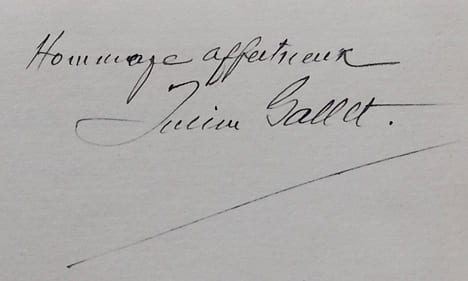 Hommage affectueux
Lucien Gallet.